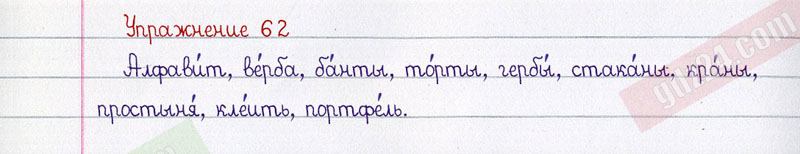 Упражнение 62
Алфави́т, ве́рба, ба́нты, то́рты, гербы́, стака́ны, кра́ны,
простыня́, кле́ить, портфе́ль.
gdz24.com